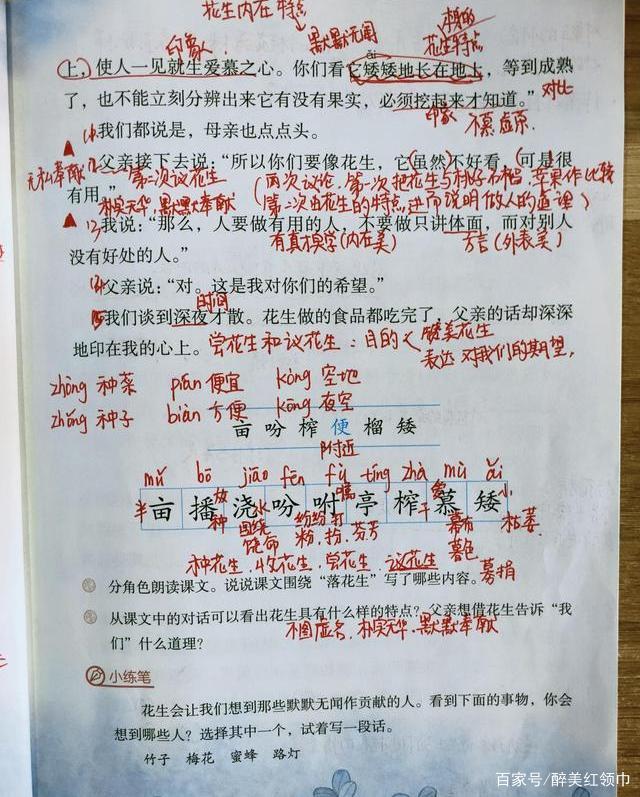 花生内在特点
印象
默默无闻
花生特点
上，使人一见就生爱慕之心。你们看它矮矮地长在地上，等到成熟
了，也不能立刻分辨出来它有没有果实，必须挖起来才知道。”
对比
印象
不慕虚荣.
(1)我们都说是，母亲也点点头。
父亲接下去说：“所以你们要像花生，它虽然不好看，可是很
有用。”
无私奉献
第二次议花生
朴实无华 默默奉献
(两次议论，第一次把花生与桃子、石榴、苹果作比较
第二次由花生的特点，进而说明做人的道理)
(3)我说：“那么，人要做有用的人，不要做只讲体面，而对别人
没有好处的人。”
有真才实学(内在美)
(外表美)
(4)父亲说：“对。这是我对你们的希望。”
时间
我们谈到深夜才散。花生做的食品都吃完了，父亲的话却深深
地印在我的心上。
尝花生和议花生：目的
赞美花生
表达对我们的期望.
zhòng 种菜 pián 便宜 kòng 空地
zhǒng 种子 biàn 方便 kōng 夜空
亩 吩 榨 便 榴 矮
附近
mǔ bō jiāo fēn fù tíng zhà mù ǎi
亩 播 浇 吩 咐 亭 榨 慕 矮
半 放 水 嘱 小
种 围绕 纷纷 打 幕布 枯萎
饶命 粉、扮、芬芳 暮色
种花生、收花生、尝花生、议花生
募捐
分角色朗读课文。说说课文围绕“落花生”写了哪些内容。
从课文中的对话可以看出花生具有什么样的特点？父亲想借花生告诉“我
们”什么道理？
不图虚名、朴实无华、默默奉献
小练笔
花生会让我们想到那些默默无闻作贡献的人。看到下面的事物，你会
想到哪些人？选择其中一个，试着写一段话。
竹子 梅花 蜜蜂 路灯
百家号/醉美红领巾